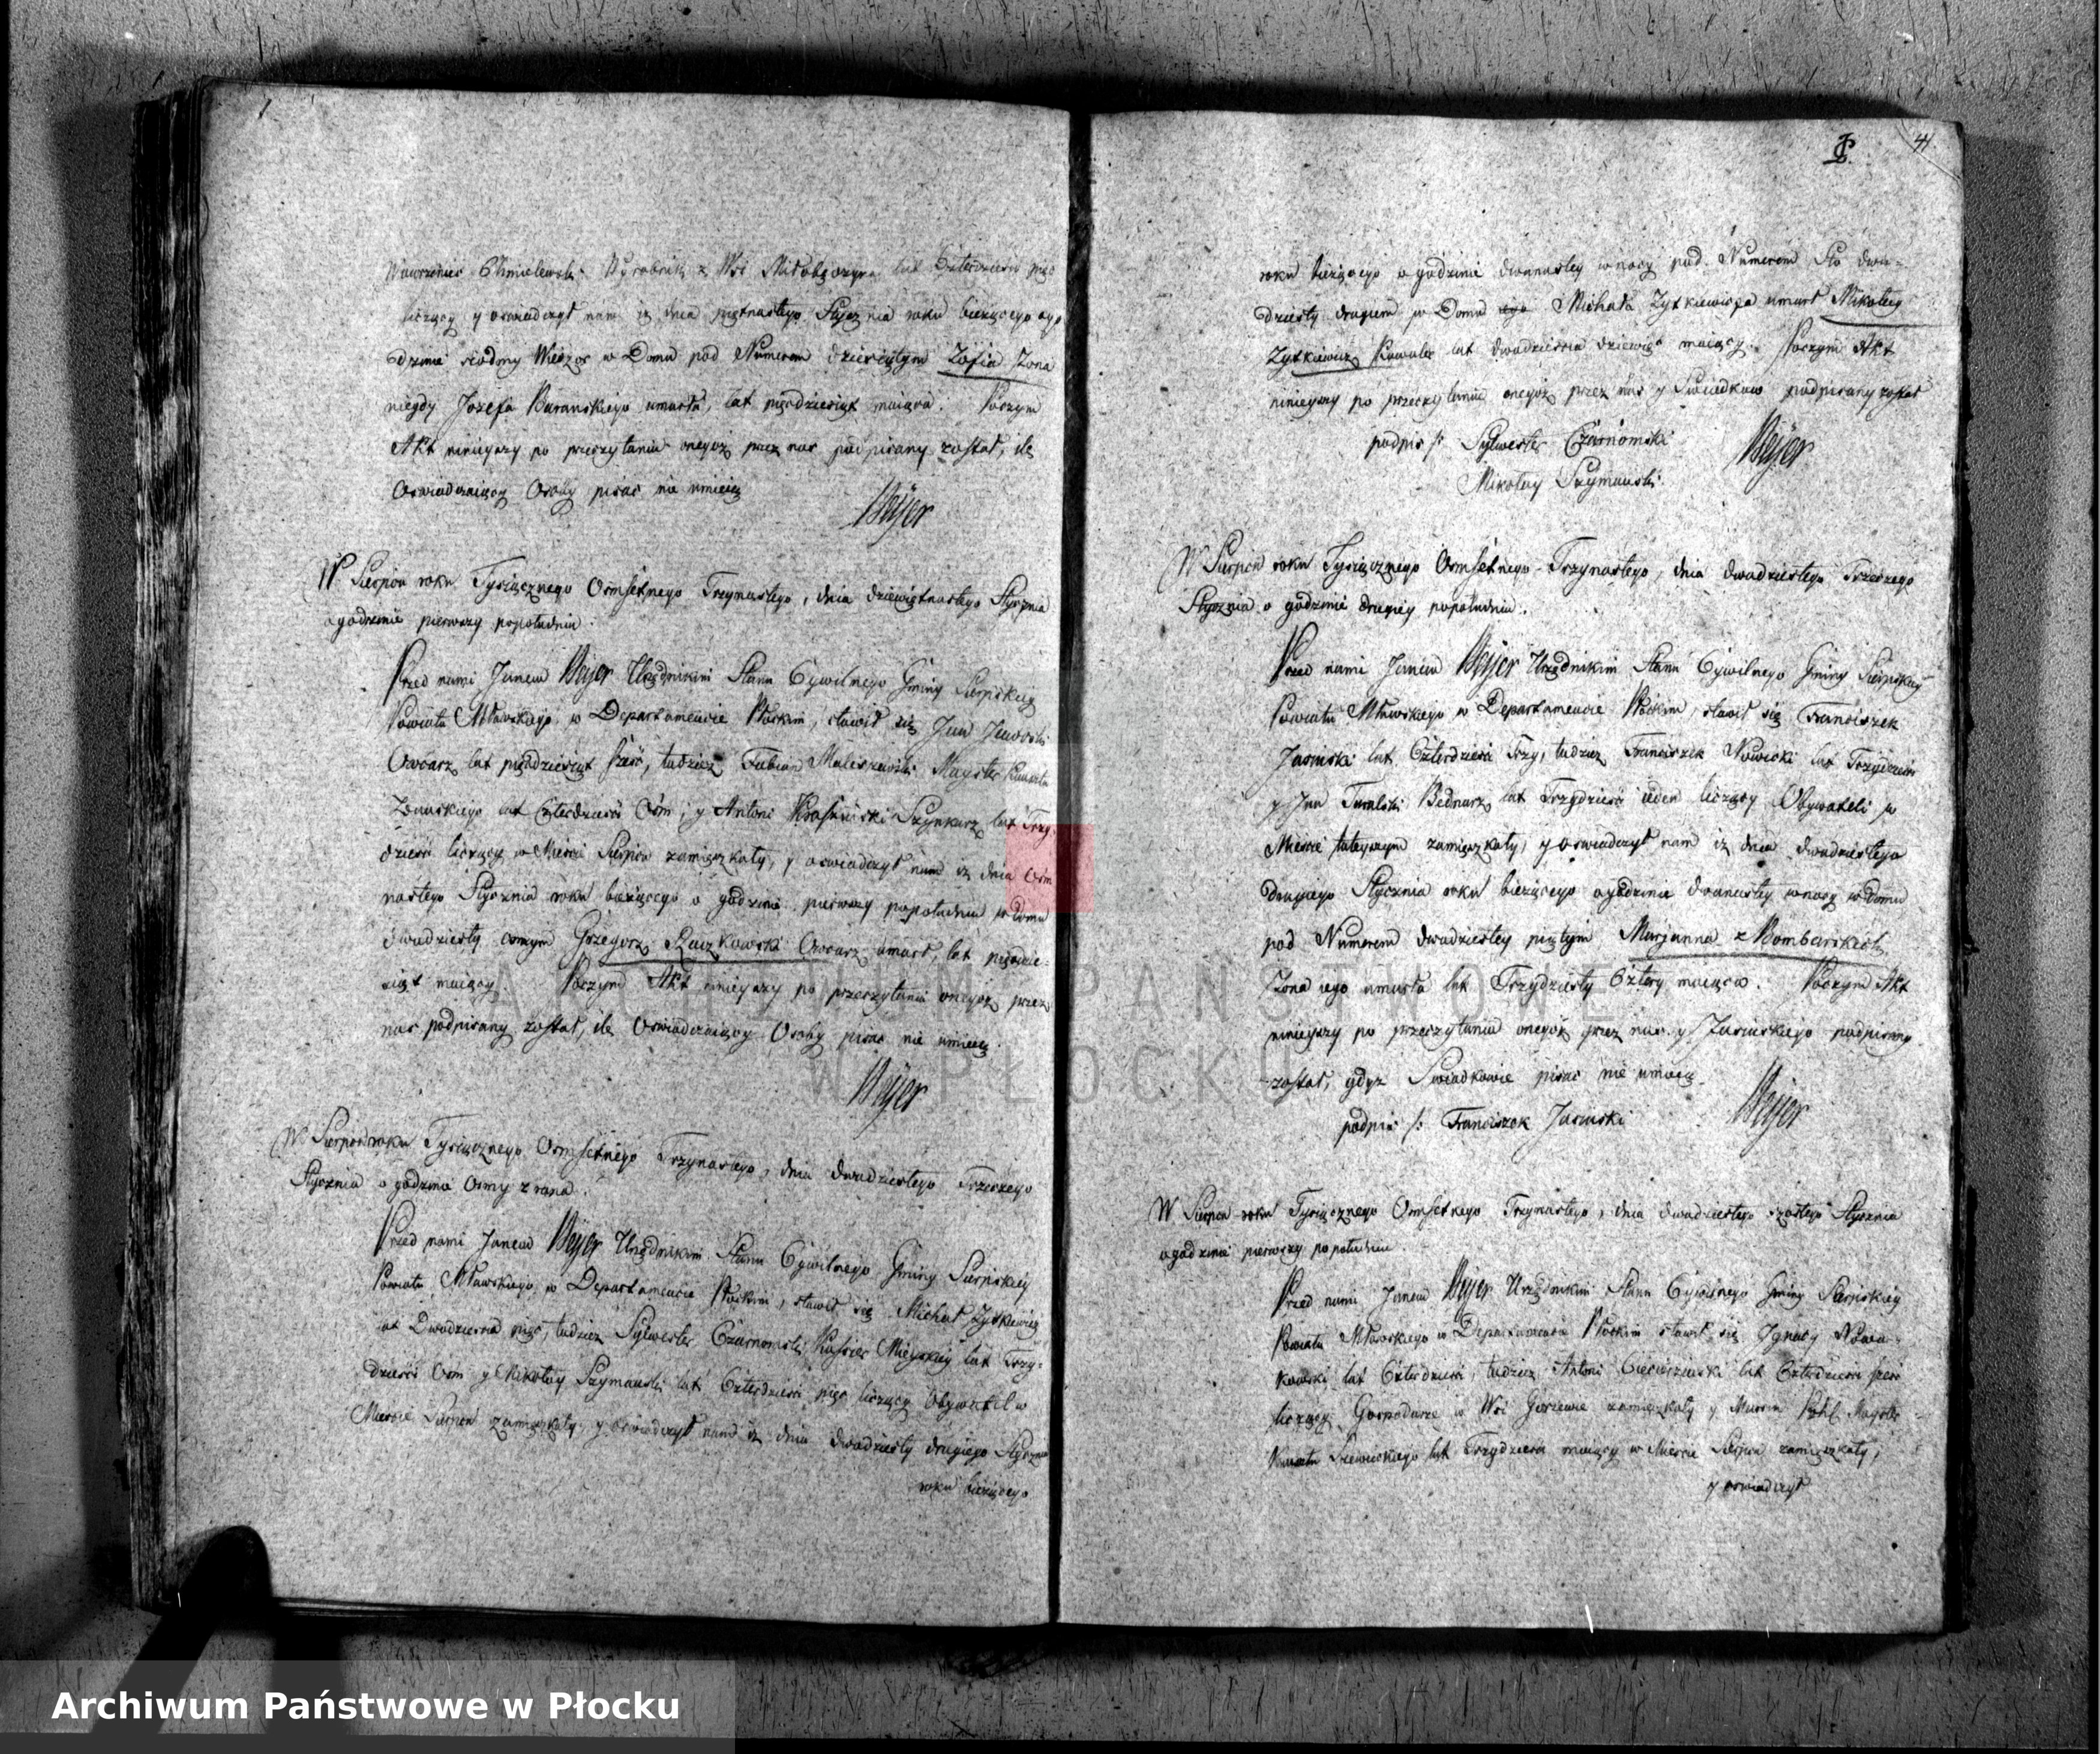 Wawrzeniec Chmielewski Wyrobnik z Wsi Miłobędzyna lat Czterdzieści pięć
liczący y oswiadczył nam iż dnia piętnastego Stycznia roku bieżącego ogo
dzinie siódmy Wieczor w Domu pod Numerem dziewiątym Zofia Żona
niegdy Jozefa Baranskiego umarła, lat pięćdziesiąt maiąca. Poczym
Akt ninieyszy po przeczytaniu onegoż przez nas podpisany został, ile
Oswiadczaiący Osoby pisać nie umieią
Beijer
W Sierpcu roku Tysiącznego Ośmsetnego Trzynastego, dnia dziewiętnastego Stycznia
o godzinie pierwszy popołudniu.
Przed nami Janem Beijer Urzędnikim Stanu Cywilnego Gminy Sierpskiey
Powiatu Mławskiego w Departamencie Płockim, stawił się Jan
Owczarz lat pięćdziesiąt sześć, tudzież Fabian Maleszewski Mayster
lat Czterdzieści Ośm, y Antoni Krasinski Szynkarz lat Trzy-
dzieści liczący w Mieście Sierpcu zamięszkały, y oswiadczył nam iż dnia Ośm
nastego Stycznia roku bieżącego o godzinie pierwszy popołudniu w Domu
dwadziesty Grzegorz Raczkowski Owczarz umarł, lat pięćdzie-
siąt maiący. Poczym Akt ninieyszy po przeczytaniu onegoż przez
nas podpisany został, ile Oswiadczaiący Osoby pisać nie umieią.
Beijer
W Sierpcu roku Tysiącznego Ośmsetnego Trzynastego, dnia dwudziestego Trzeciego
Stycznia o godzinie Osmy z rana.
Przed nami Janem Beijer Urzędnikim Stanu Cywilnego Gminy Sierpskiey
Powiatu Mławskiego w Departamencie Płockim, stawił się Michał Zytkiewicz
lat Dwadzieścia pięć, tudzież Sylwester Czarnomski Kassier Mieyskiey lat Trzy-
dzieści Ośm y Mikołay Szymanski lat Czterdzieści pięć liczący Obywatel w
Mieście Sierpcu zamięszkały, y oswiadczył nam iż dnia dwadziesty drugiego Stycznia
roku bieżącego
41
roku bieżącego o godzinie dwunastey w nocy pod Numerem Sto dwa-
dziesty drugiem w Domu iego Michała Zytkiewicza umarł Mikołay
Zytkiewicz Kawaler lat dwadzieścia dziewięć maiący. Poczym Akt
ninieyszy po przeczytaniu onegoż przez nas y Swiadkow podpisany został
podpis /: Sylwester Czarnomski
Beijer
Mikołay Szymanski
W Sierpcu roku Tysiącznego Ośmsetnego Trzynastego, dnia dwadziestego Trzeciego
Stycznia o godzinie drugiey popołudniu.
Przed nami Janem Beijer Urzędnikim Stanu Cywilnego Gminy Sierpskiey
Powiatu Mławskiego w Departamencie Płockim, stawił się Franciszek
Jasinski lat Czterdzieści Trzy, tudzież Franciszek Nowicki lat Trzydzieści
y Jan Bednarz lat Trzydzieści ieden liczący Obywateli w
Mieście tuteyszym zamięszkały, y oswiadczył nam iż dnia dwadziestego
drugiego Stycznia roku bieżącego o godzinie dwunastey w nocy w Domu
pod Numerem dwadziestey piątym Marjanna z Bombarskich
Żona iego umarła lat Trzydziesty Cztery maiąca. Poczym Akt
ninieyszy po przeczytaniu onegoż przez nas y Jasinskiego podpisany
został, gdyż Swiadkowie pisać nie umieią.
podpis /: Franciszek Jasinski
Beijer
W Sierpcu roku Tysiącznego Ośmsetnego Trzynastego, dnia dwadziestego szóstego Stycznia
o godzinie pierwszy popołudniu.
Przed nami Janem Beijer Urzędnikim Stanu Cywilnego Gminy Sierpskiey
Powiatu Mławskiego w Departamencie Płockim stawił się Ignacy Nowa-
kowski lat Czterdzieści, tudzież Antoni lat Czterdzieści sześć
liczący Gospodarze w Wsi Gorzewie zamięszkały y Marcin Mayster
Kunsztu Szewskiego lat Trzydzieści maiący w Mieście Sierpcu zamięszkały,
y oswiadczył
ARCHIWUM PAŃSTWOWE
W PŁOCKU
Archiwum Państwowe w Płocku